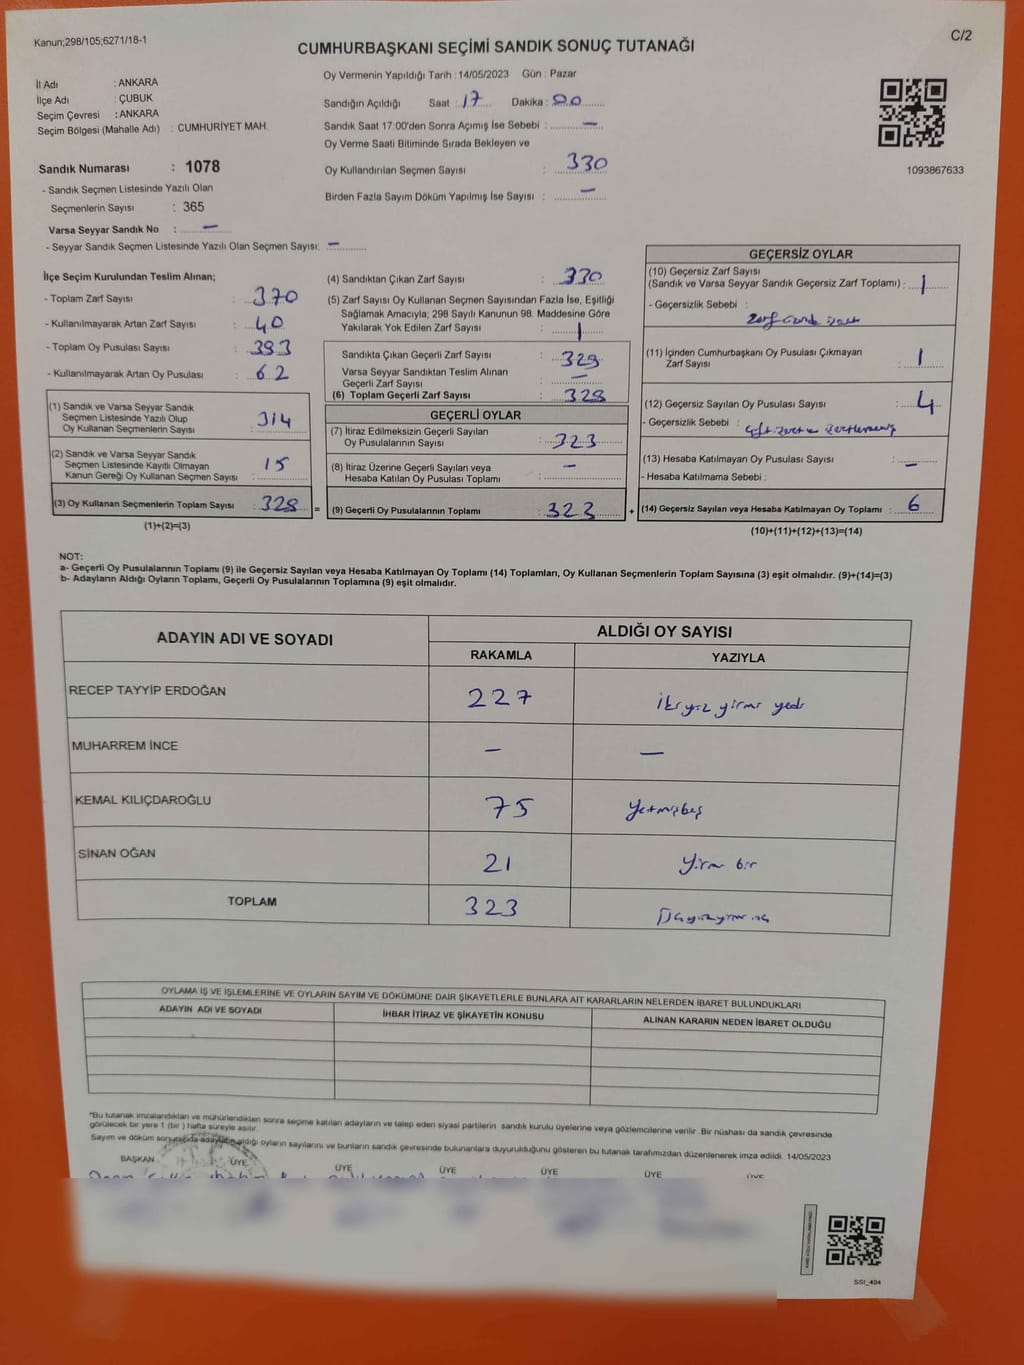 Kanun;298/105;6271/18-1
C/2
CUMHURBAŞKANI SEÇİMİ SANDIK SONUÇ TUTANAĞI
İl Adı : ANKARA
İlçe Adı : ÇUBUK
Seçim Çevresi : ANKARA
Seçim Bölgesi (Mahalle Adı) : CUMHURİYET MAH.
Sandık Numarası : 1078
- Sandık Seçmen Listesinde Yazılı Olan
Seçmenlerin Sayısı : 365
Varsa Seyyar Sandık No : —
- Seyyar Sandık Seçmen Listesinde Yazılı Olan Seçmen Sayısı: —
Oy Vermenin Yapıldığı Tarih : 14/05/2023 Gün : Pazar
Sandığın Açıldığı Saat : 17 Dakika : 00
Sandık Saat 17.00'den Sonra Açımış İse Sebebi : —
Oy Verme Saati Bitiminde Sırada Bekleyen ve
Oy Kullandırılan Seçmen Sayısı : 330
Birden Fazla Sayım Döküm Yapılmış İse Sayısı : —
1093867633
İlçe Seçim Kurulundan Teslim Alınan;
- Toplam Zarf Sayısı : 370
- Kullanılmayarak Artan Zarf Sayısı : 40
- Toplam Oy Pusulası Sayısı : 393
- Kullanılmayarak Artan Oy Pusulası : 62
(1) Sandık ve Varsa Seyyar Sandık
Seçmen Listesinde Yazılı Olup
Oy Kullanan Seçmenlerin Sayısı : 314
(2) Sandık ve Varsa Seyyar Sandık
Seçmen Listesinde Kayıtlı Olmayan
Kanun Gereği Oy Kullanan Seçmen Sayısı : 15
(3) Oy Kullanan Seçmenlerin Toplam Sayısı : 328 =
(1)+(2)=(3)
(4) Sandıktan Çıkan Zarf Sayısı : 330
(5) Zarf Sayısı Oy Kullanan Seçmen Sayısından Fazla İse, Eşitliği
Sağlamak Amacıyla; 298 Sayılı Kanunun 98. Maddesine Göre
Yakılarak Yok Edilen Zarf Sayısı : 1
Sandıkta Çıkan Geçerli Zarf Sayısı : 329
Varsa Seyyar Sandıktan Teslim Alınan
Geçerli Zarf Sayısı : —
(6) Toplam Geçerli Zarf Sayısı : 328
GEÇERLİ OYLAR
(7) İtiraz Edilmeksizin Geçerli Sayılan
Oy Pusulalarının Sayısı : 323
(8) İtiraz Üzerine Geçerli Sayılan veya
Hesaba Katılan Oy Pusulası Toplamı : —
(9) Geçerli Oy Pusulalarının Toplamı : 323 +
GEÇERSİZ OYLAR
(10) Geçersiz Zarf Sayısı
(Sandık ve Varsa Seyyar Sandık Geçersiz Zarf Toplamı) : 1
- Geçersizlik Sebebi :
(11) İçinden Cumhurbaşkanı Oy Pusulası Çıkmayan
Zarf Sayısı : 1
(12) Geçersiz Sayılan Oy Pusulası Sayısı : 4
- Geçersizlik Sebebi :
(13) Hesaba Katılmayan Oy Pusulası Sayısı : —
- Hesaba Katılmama Sebebi :
(14) Geçersiz Sayılan veya Hesaba Katılmayan Oy Toplamı : 6
(10)+(11)+(12)+(13)=(14)
NOT:
a- Geçerli Oy Pusulalarının Toplamı (9) ile Geçersiz Sayılan veya Hesaba Katılmayan Oy Toplamı (14) Toplamları, Oy Kullanan Seçmenlerin Toplam Sayısına (3) eşit olmalıdır. (9)+(14)=(3)
b- Adayların Aldığı Oyların Toplamı, Geçerli Oy Pusulalarının Toplamına (9) eşit olmalıdır.
ADAYIN ADI VE SOYADI
ALDIĞI OY SAYISI
RAKAMLA YAZIYLA
RECEP TAYYİP ERDOĞAN 227 İkiyüz yirmi yedi
MUHARREM İNCE — —
KEMAL KILIÇDAROĞLU 75 Yetmişbeş
SİNAN OĞAN 21 Yirmi bir
TOPLAM 323 Üçyüzyirmi üç
OYLAMA İŞ VE İŞLEMLERİNE VE OYLARIN SAYIM VE DÖKÜMÜNE DAİR ŞİKAYETLERLE BUNLARA AİT KARARLARIN NELERDEN İBARET BULUNDUKLARI
ADAYIN ADI VE SOYADI İHBAR İTİRAZ VE ŞİKAYETİN KONUSU ALINAN KARARIN NEDEN İBARET OLDUĞU
*Bu tutanak imzalandıktan ve mühürlendikten sonra seçime katılan adayların ve talep eden siyasi partilerin sandık kurulu üyelerine veya gözlemcilerine verilir. Bir nüshası da sandık çevresinde
görülecek bir yere 1 (bir) hafta süreyle asılır.
Sayım ve döküm sonucunda adayların aldığı oyların sayılarını ve bunların sandık çevresinde bulunanlara duyurulduğunu gösteren bu tutanak tarafımızdan düzenlenerek imza edildi. 14/05/2023
BAŞKAN ÜYE ÜYE ÜYE ÜYE ÜYE ÜYE
SSI_404